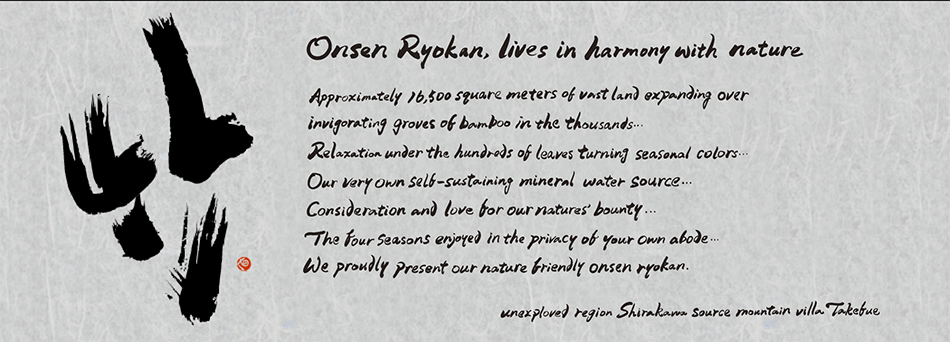 Onsen Ryokan, lives in harmony with nature
Approximately 16,500 square meters of vast land expanding over
invigorating groves of bamboo in the thousands...
Relaxation under the hundreds of leaves turning seasonal colors...
Our very own self-sustaining mineral water source...
Consideration and love for our natures' bounty...
The four seasons enjoyed in the privacy of your own abode...
We proudly present our nature friendly onsen ryokan.
unexploved region Shirakawa source mountain villa Takefue